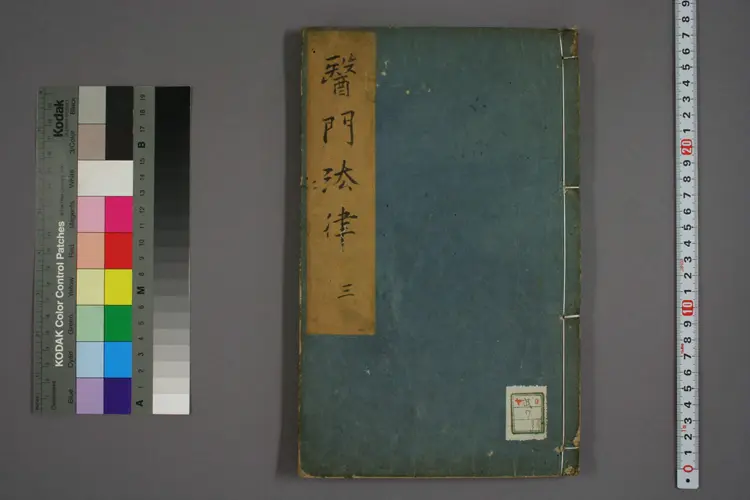 醫門法律
三
KODAK Color Control Patches
Kodak
Blue
Cyan
Green
Yellow
Red
Magenta
White
3/Color
Black
A 1 2 3 4 5 6 M 8 9 10 11 12 13 14 15 B 17 18 19
0 1 2 3 4 5 6 7 8 9 10 1 2 3 4 5 6 7 8 9 20 1 2 3 4 5 6 7 8 9